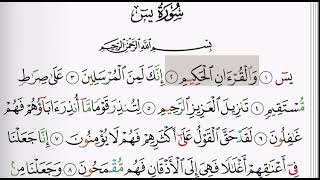 سُورَةُ يسٓ
بِسْمِ اللَّهِ الرَّحْمَٰنِ الرَّحِيمِ
يسٓ ١ وَالْقُرْءَانِ الْحَكِيمِ ٢ إِنَّكَ لَمِنَ الْمُرْسَلِينَ ٣ عَلَىٰ صِرَاطٍ
مُّسْتَقِيمٍ ٤ تَنزِيلَ الْعَزِيزِ الرَّحِيمِ ٥ لِتُنذِرَ قَوْمًا مَّا أُنذِرَ ءَابَاؤُهُمْ فَهُمْ
غَٰفِلُونَ ٦ لَقَدْ حَقَّ الْقَوْلُ عَلَىٰ أَكْثَرِهِمْ فَهُمْ لَا يُؤْمِنُونَ ٧ إِنَّا جَعَلْنَا
فِي أَعْنَٰقِهِمْ أَغْلَٰلًا فَهِيَ إِلَى الْأَذْقَانِ فَهُم مُّقْمَحُونَ ٨ وَجَعَلْنَا مِنۢ